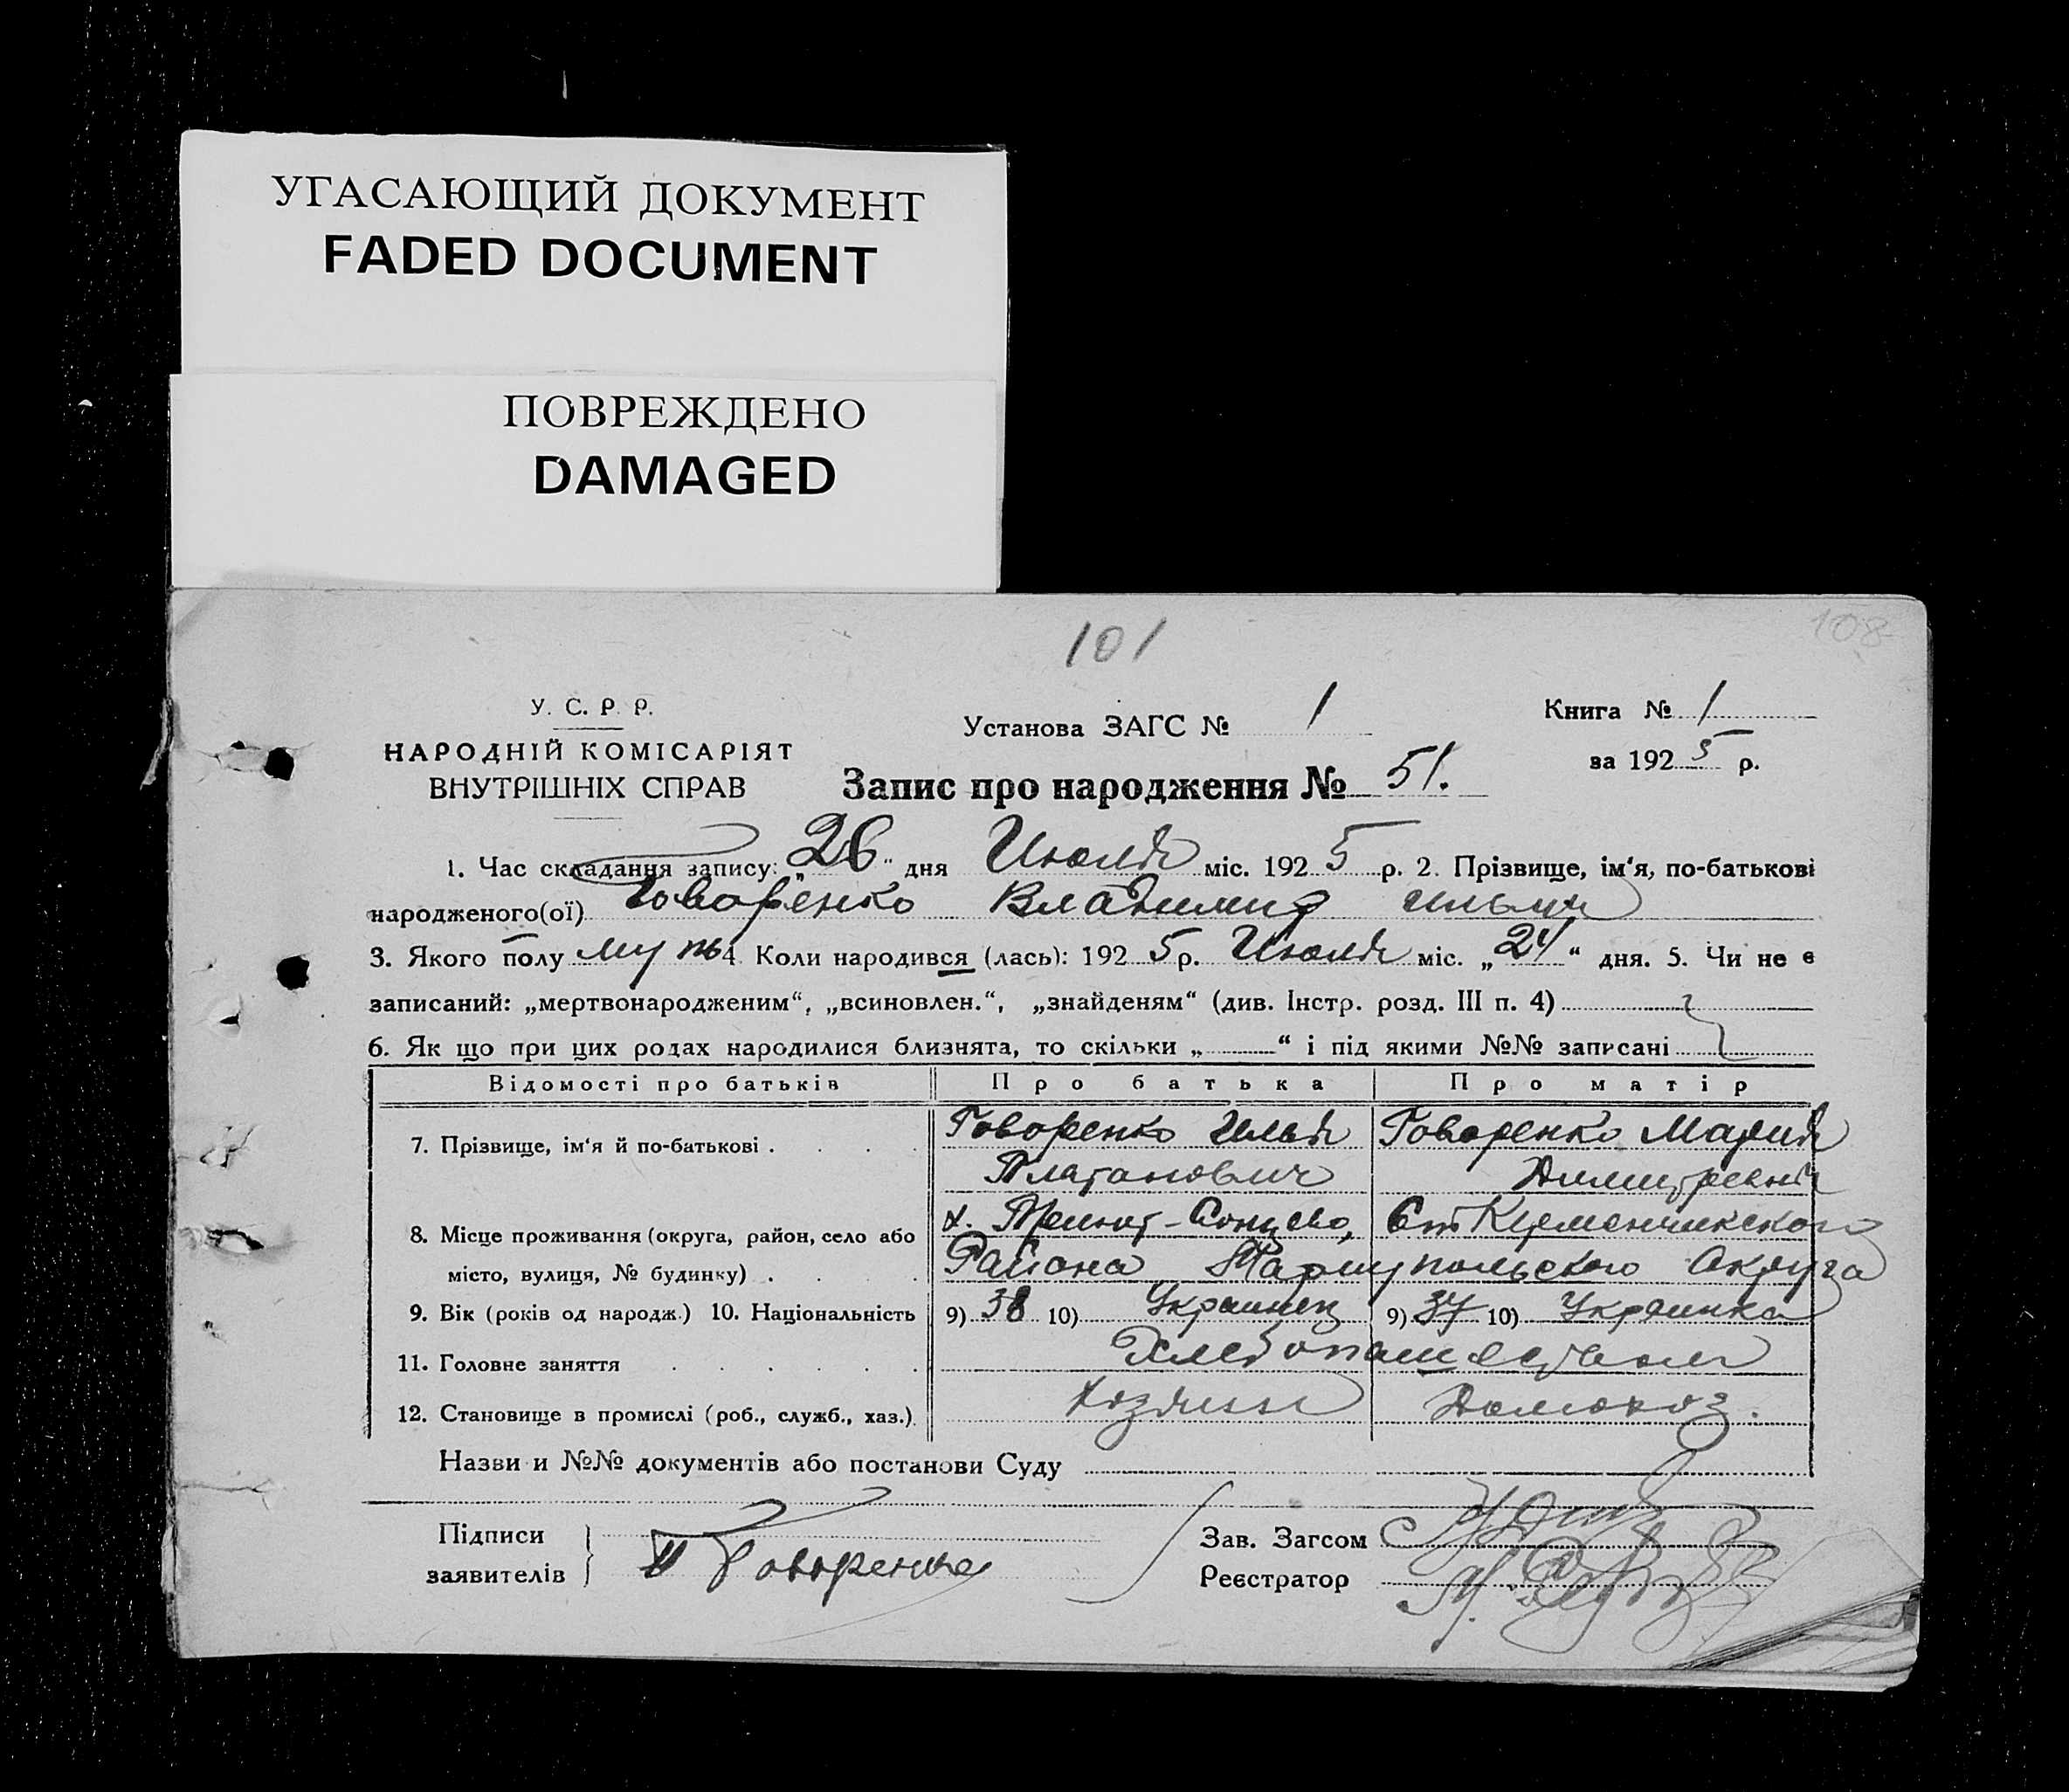 УГАСАЮЩИЙ ДОКУМЕНТ
FADED DOCUMENT
ПОВРЕЖДЕНО
DAMAGED
101
108
У. С. Р. Р.
НАРОДНІЙ КОМІСАРІЯТ
ВНУТРІШНІХ СПРАВ
Установа ЗАГС № 1
Книга № 1
за 1925 р.
Запис про народження № 51.
1. Час складання запису: „26" дня Июля міс. 1925 р. 2. Прізвище, ім'я, по-батькові
народженого(ої) Говоренко Владимир Ильич
3. Якого полу муж 4. Коли народився (лась): 1925 р. Июля міс. „24" дня. 5. Чи не є
записаний: „мертвонародженим", „всиновлен.", „знайденям" (див. Інстр. розд. III п. 4)
6. Як що при цих родах народилися близнята, то скільки „ " і під якими №№ записані
Відомості про батьків Про батька Про матір
7. Прізвище, ім'я й по-батькові . . . . Говоренко Илья Говоренко Мария
Платонович Димитревна
8. Місце проживання (округа, район, село або х. Сонцево, Кременчикского
місто, вулиця, № будинку) . . . . Района Мариупольского Округа
9. Вік (років од народж.) 10. Національність 9) 38 10) Украинец 9) 37 10) Украинка
11. Головне заняття . . . . . . Хлебопашеством
12. Становище в промислі (роб., служб., хаз.) Хозяин Домохоз.
Назви и №№ документів або постанови Суду
Підписи
заявителів И Говоренко
Зав. Загсом
Реєстратор